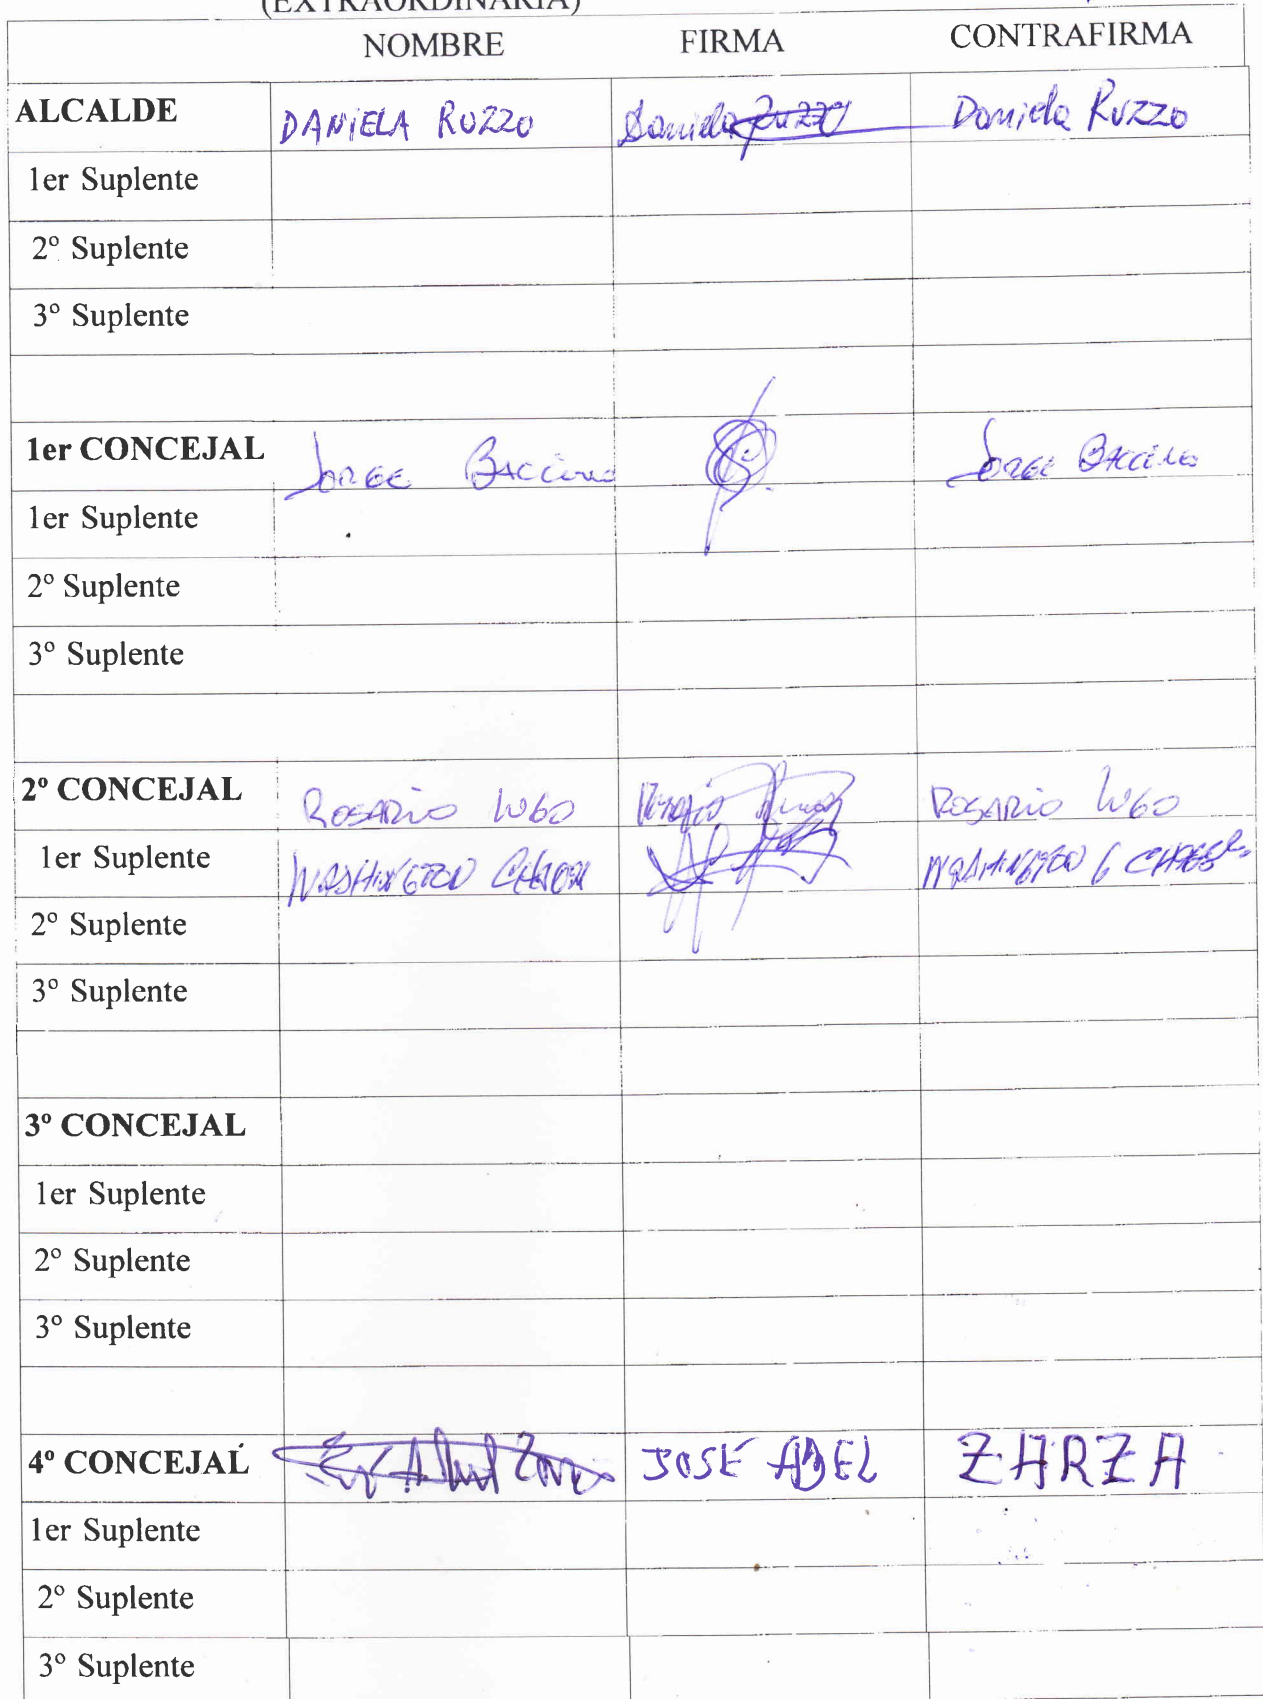 (EXTRAORDINARIA)
NOMBRE FIRMA CONTRAFIRMA
ALCALDE DANIELA RUZZO Daniela Ruzzo Daniela Ruzzo
1er Suplente
2º Suplente
3º Suplente
1er CONCEJAL JORGE BACCINO JORGE BACCINO
1er Suplente
2º Suplente
3º Suplente
2º CONCEJAL ROSARIO LUGO ROSARIO LUGO
1er Suplente WASHINGTON WASHINGTON
2º Suplente
3º Suplente
3º CONCEJAL
1er Suplente
2º Suplente
3º Suplente
4º CONCEJAL JOSÉ ABEL ZARZA
1er Suplente
2º Suplente
3º Suplente